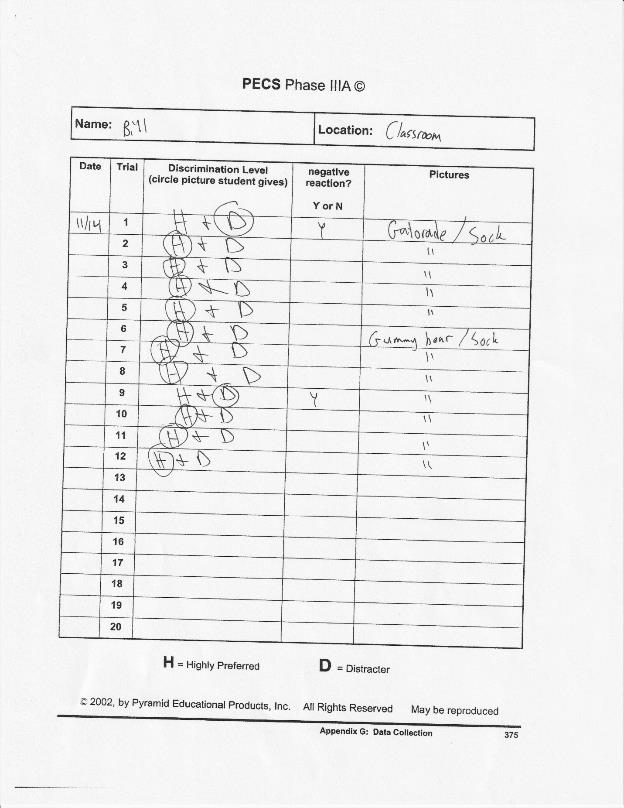 PECS Phase IIIA ©
Name: Bill Location: Classroom
Date Trial Discrimination Level (circle picture student gives) negative reaction? Y or N Pictures
11/14 1 H + D Y Gatorade / Sock
2 H + D "
3 H + D "
4 H + D "
5 H + D "
6 H + D Gummy bear / Sock
7 H + D "
8 H + D "
9 H + D Y "
10 H + D "
11 H + D "
12 H + D "
13
14
15
16
17
18
19
20
H = Highly Preferred D = Distracter
© 2002, by Pyramid Educational Products, Inc. All Rights Reserved May be reproduced
Appendix G: Data Collection 375